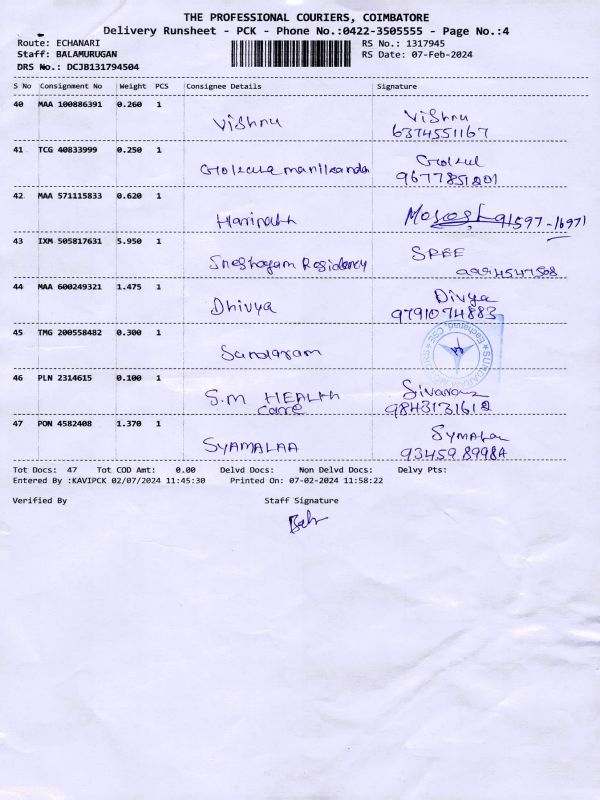 THE PROFESSIONAL COURIERS, COIMBATORE
Delivery Runsheet - PCK - Phone No.:0422-3505555 - Page No.:4
Route: ECHANARI RS No.: 1317945
Staff: BALAMURUGAN RS Date: 07-Feb-2024
DRS No.: DCJB131794504
S No Consignment No Weight PCS Consignee Details Signature
40 MAA 100886391 0.260 1
Vishnu Vishnu
6374551167
41 TCG 40833999 0.250 1
Gokul
Gokula manikanda 9677851201
42 MAA 571115833 0.620 1
Harinath 91597-16971
43 IXM 505817631 5.950 1
Snehagam Residency SREE
9994547508
44 MAA 600249321 1.475 1
Dhivya Divya
9791074883
45 TMG 200558482 0.300 1
Sundaram
46 PLN 2314615 0.100 1
S.M HEALTH
care 9843131612
47 PON 4582408 1.370 1
SYAMALAA
93459 89984
Tot Docs: 47 Tot COD Amt: 0.00 Delvd Docs: Non Delvd Docs: Delvy Pts:
Entered By :KAVIPCK 02/07/2024 11:45:30 Printed On: 07-02-2024 11:58:22
Verified By Staff Signature